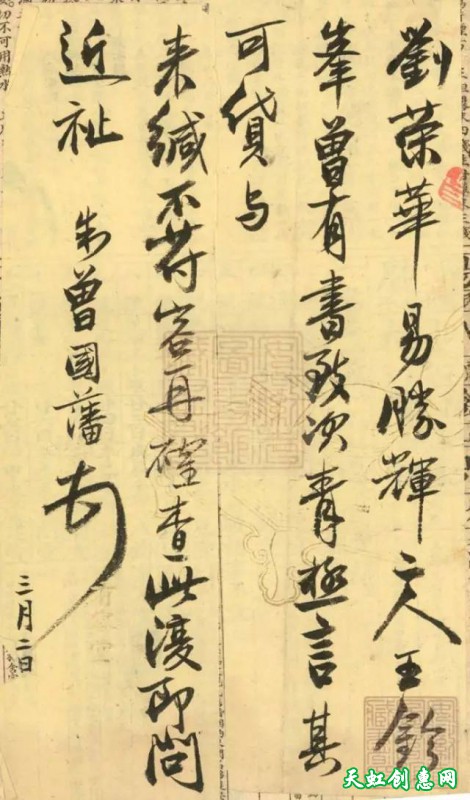 劉榮華易勝輝二人王鈐
峯曾有書致次青極言其
可貸与
来緘不符容再確查此復即問
近祉 朱曾國藩
三月二日
天虹创惠网